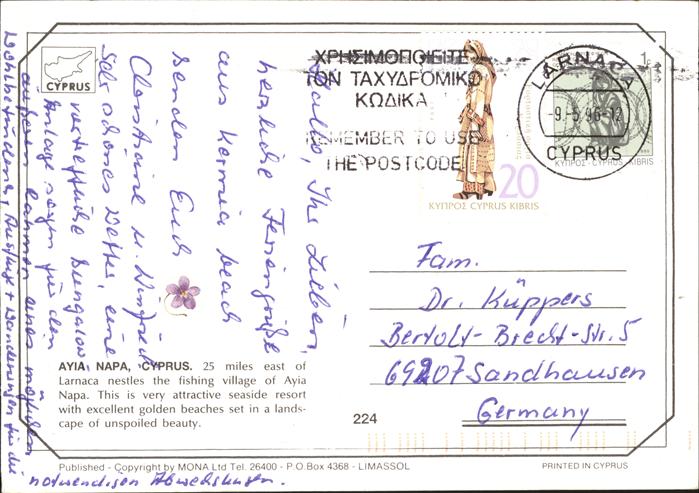 CYPRUS
ΧΡΗΣΙΜΟΠΟΙΕΙΤΕ
ΤΟΝ ΤΑΧΥΔΡΟΜΙΚΟ
ΚΩΔΙΚΑ
REMEMBER TO USE
THE POSTCODE
20
ΚΥΠΡΟΣ CYPRUS KIBRIS
LARNACA
-9.-5.96-12
CYPRUS
1c
ΚΥΠΡΟΣ-CYPRUS KIBRIS
Hallo, Ihr Lieben,
herzliche Feriengrüße
aus Kermia beach
senden Euch
Christiane u. Winfried
Sehr schönes Wetter, eine
vortreffliche Bungalow
Anlage sorgen für den
äußeren Rahmen eines möglichen
Wohlbefindens, Ausflüge + Wanderungen für die
notwendigen Abwechslungen.
Fam.
Dr. Küppers
Bertolt-Brecht-Str. 5
69207 Sandhausen
Germany
AYIA NAPA, CYPRUS. 25 miles east of
Larnaca nestles the fishing village of Ayia
Napa. This is very attractive seaside resort
with excellent golden beaches set in a lands-
cape of unspoiled beauty.
224
Published - Copyright by MONA Ltd Tel. 26400 - P.O.Box 4368 - LIMASSOL
PRINTED IN CYPRUS